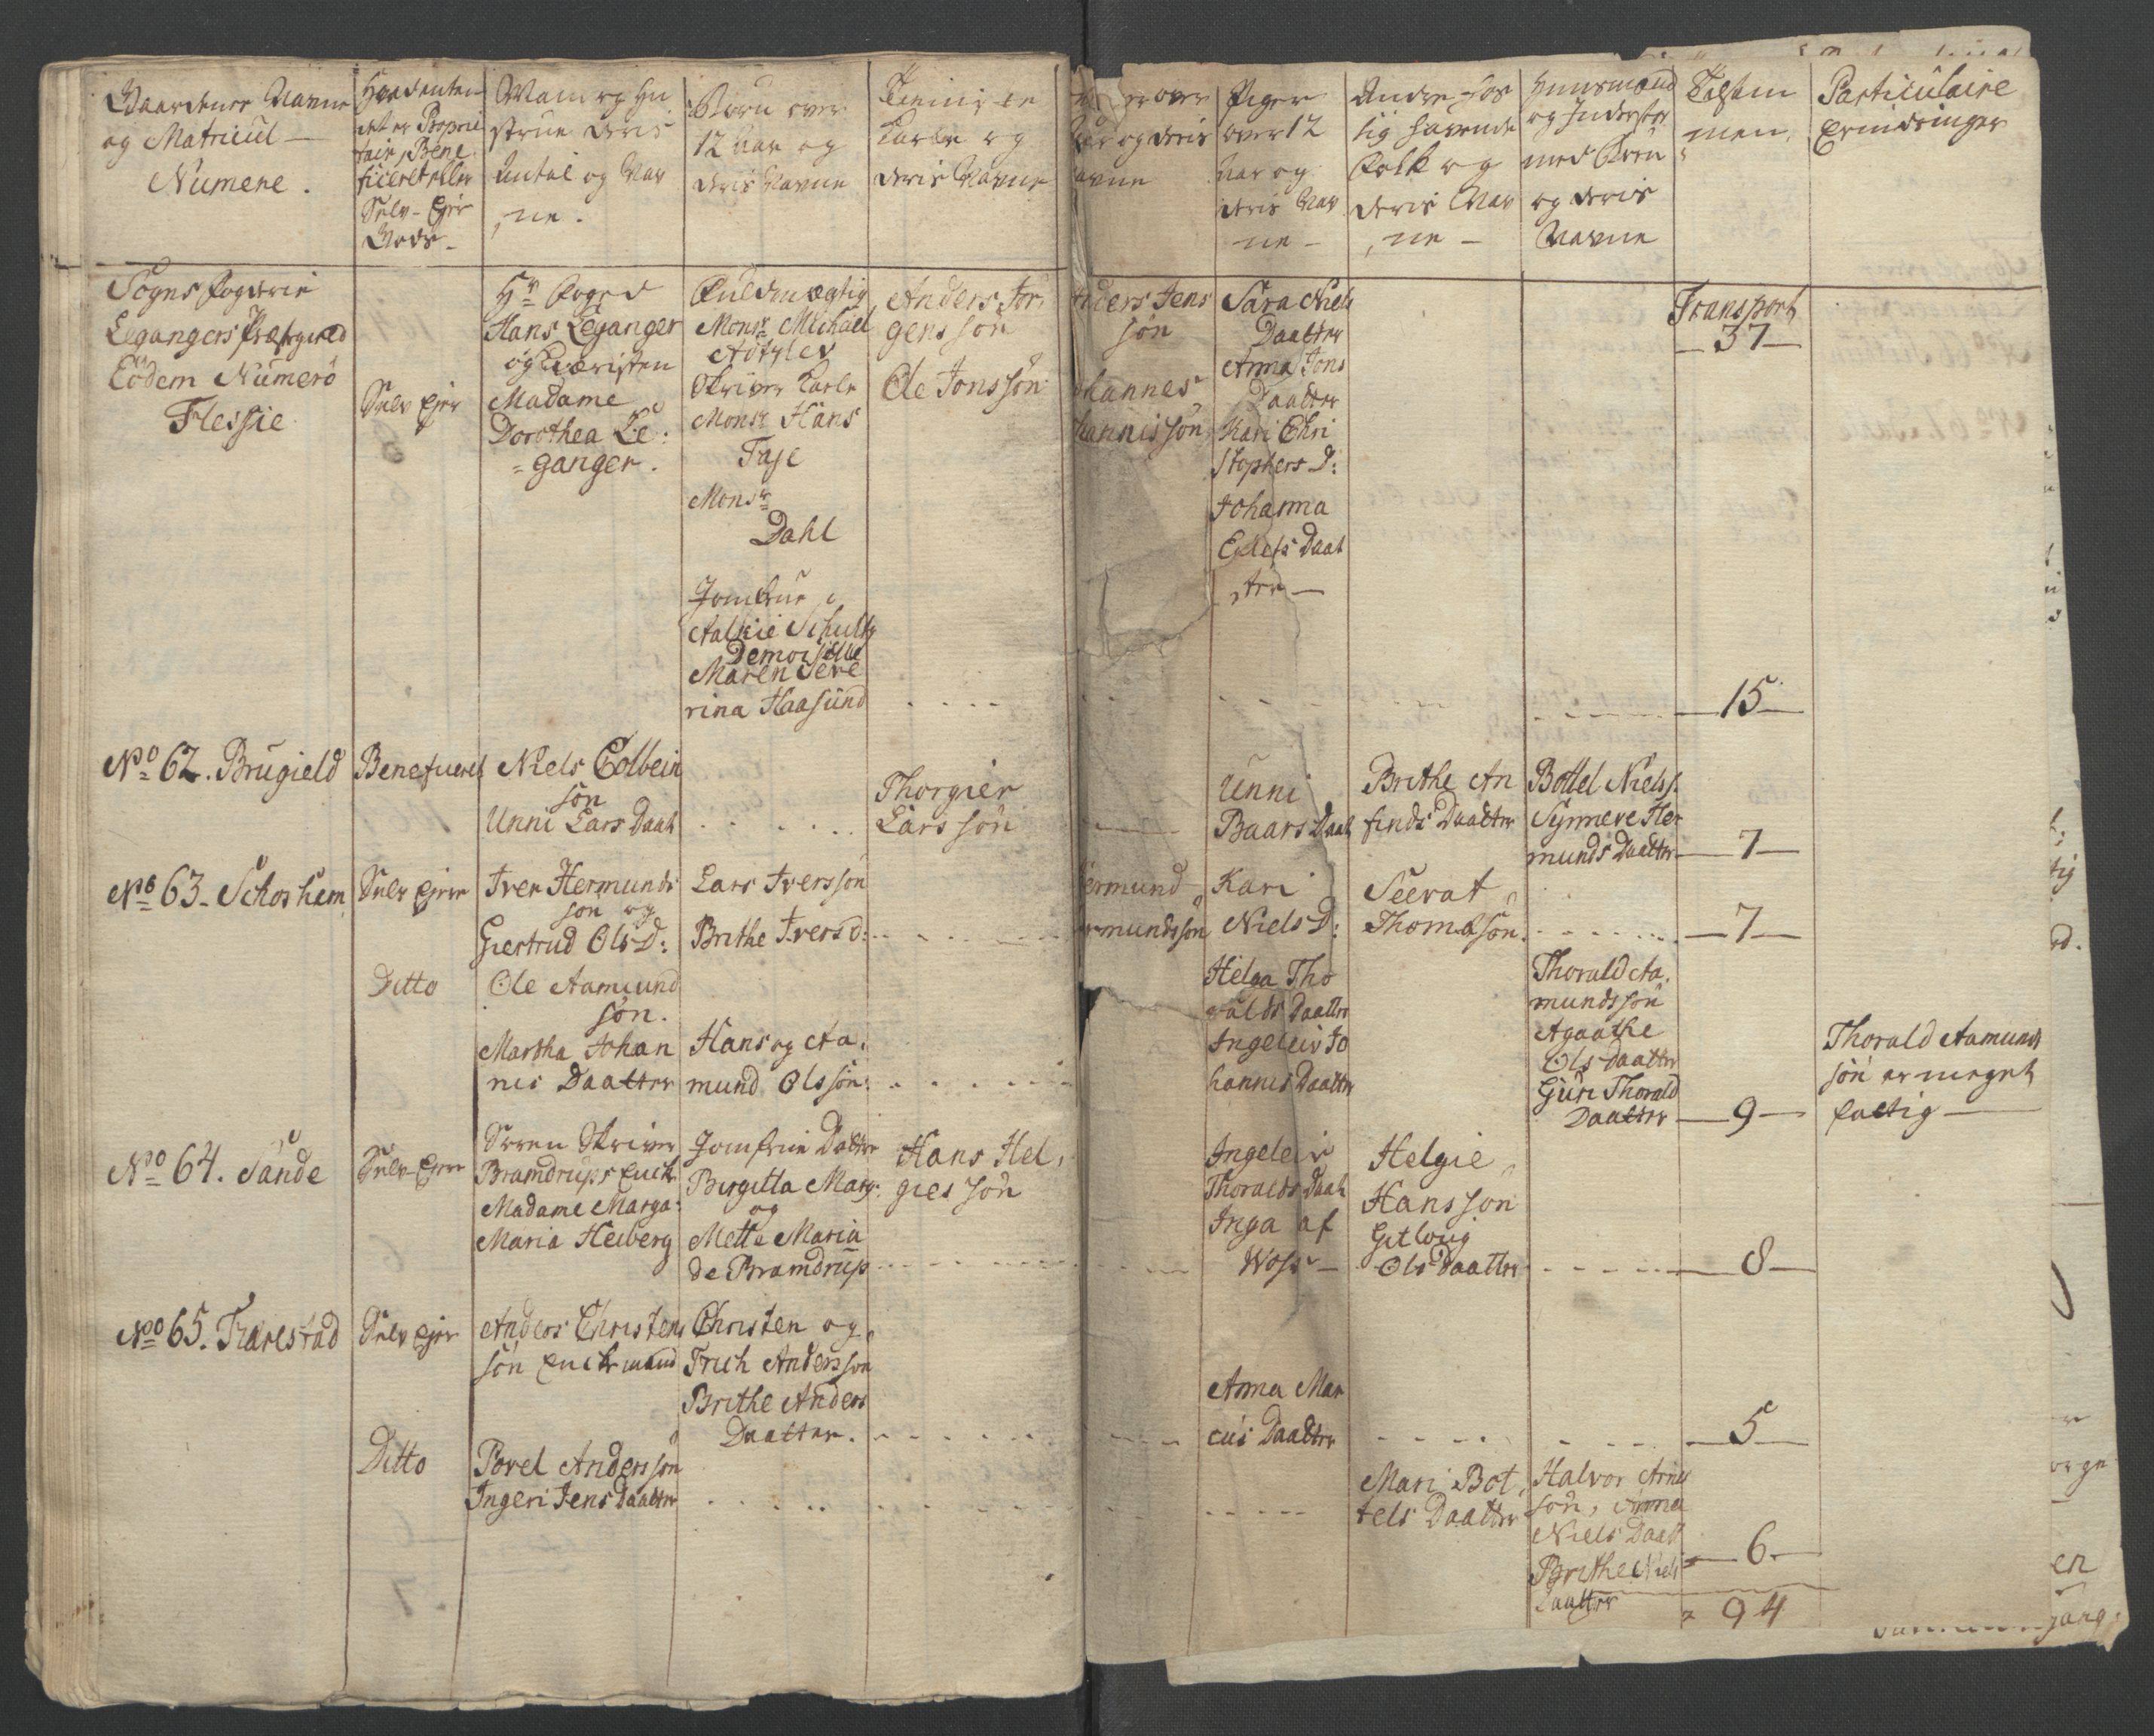 Gaardenes Navne
og Matricul
Numere.
Hvad enten
det er Proprie
tair, Bene
ficeret eller
Selv-Ejer
Gods
Mand og Hu
struer deris
Antal og Nav
ne.
Børn over
12 Aar og
deris Navne
Tienniste
Karle og
deris Navne
er over
og deris
avne
Piger
over 12
Aar og
deris Nav
ne -
Andre hos
sig havende
Folk og
deris Nav
ne -
Huusmænd
og Inderster
med Børn
og deris
Navne
Talsum
men,
Particulaire
Erindringer
Sogns fogderie
Legangers Præstgield
Eodem Numero
Flessie
Selv Ejer
Hr Foged
Hans Leganger
og Kieristen
Madame
Dorothea Le=
=ganger.
Fuldmægtig
Monsr Michael
Skriver Karle
Monsr Hans
Faje
Monsr
Dahl
Jomfrue
Aalkie Schultz
Demoiselle
Maren Seve
rina Haasund
Anders Jør
gens søn
Ole Jons søn
nders Jens
søn
ohannes
hannis søn
Sara Niels
Daatter
Anna Jons
Daatter
Kari Chri
stophers D:
Johanna
Elefs Daat
ter —
Transport
— 37 —
— 15 —
No 62. Brugield
Beneficeret
Niels Colbein
søn
Unni Lars Daat
Thorgier
Lars søn
Unni
Baars Daat
Brithe An
finds Daatter
Bottel Niels s.
Synneve Her
munds Daatter
— 7 —
No 63. Schoshem
Selv Ejer
Iver Hermunds
søn og
Giertrud Ols D:
Lars Ivers søn
Brithe Ivers D:
ermund
rmunds søn
Kari
Niels D:
Seevat
Thomæ søn
— 7 —
Ditto
Ole Aamund
søn.
Martha Johan
nes Daatter
Hans og Aa,
mund Ols søn:
Helga Tho
ralds Daatter
Ingeleiv Jo
hannes Daatter
Thorald Aa,
munds søn
Agaathe
Ols Daatter
Guri Thorald
Daatter
— 9 —
Thorald Aamunds
søn er meget
fattig —
No 64. Sande
Selv-Ejer
Søren Skriver
Bramdrups Enke
Madame Marga:
Maria Heiberg
Jomfrue Døttre
Birgitta Marg:
og
Mette Maria
de Bramdrup
Hans Hel,
gies søn
Ingeleiv
Thoralds Daat
Inga af
Woss —
Helgie
Hans søn
Gitloug
Ols Daatter
— 8 —
No 65. Fiærestad
Selv Ejer
Anders Christens
søn Enkemand
Christen og
Frich Anders søn
Brithe Anders
Daatter.
Anna Mar
cus Daatter
— 5 —
Ditto
Povel Anders søn
Ingeri Jens Daatter
Mari Bot,
tels Daatter
Halvor Arnes
søn, Anna
Niels Daat
Brithe Niels
Daatter
— 6 —
94